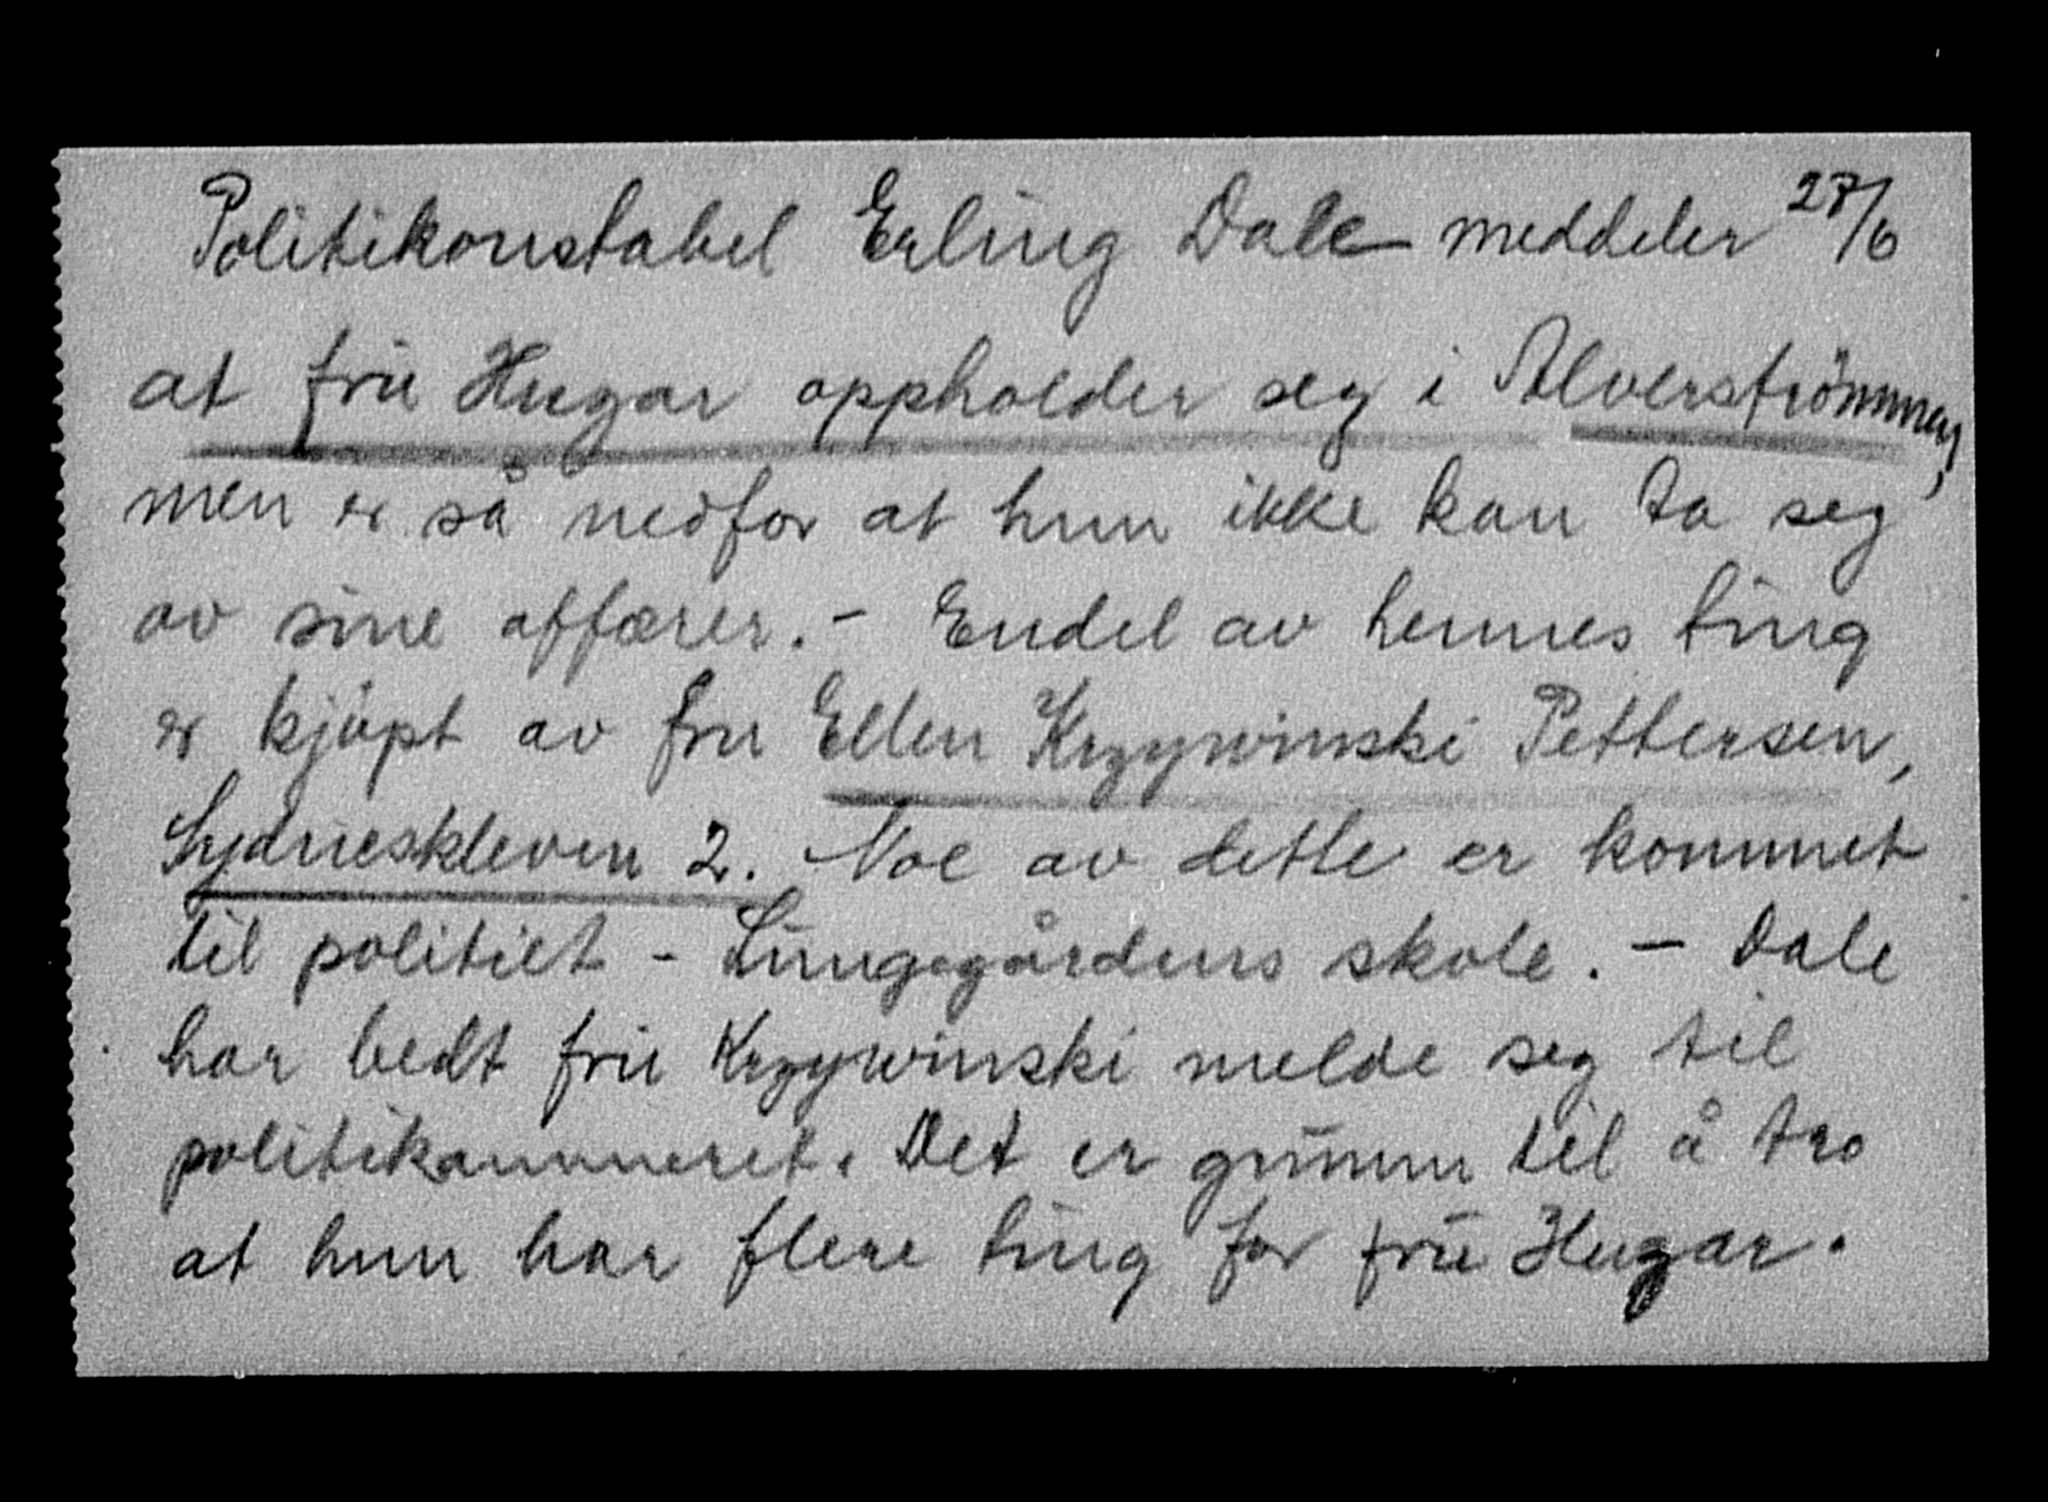 Politikonstabel Erling Dale meddeler 27/6
at fru Hugar oppholder seg i Alverströmmen,
men er så nedfor at hun ikke kan ta seg
av sine affærer. - Endel av hennes ting
er kjöpt av fru Ellen Krzywinski Pettersen,
Sydneskleven 2. Noe av dette er kommet
til politiet - Lungegårdens skole. - Dale
har bedt fru Krzywinski melde seg til
politikammeret. Det er grunn til å tro
at hun har flere ting for fru Hugar.